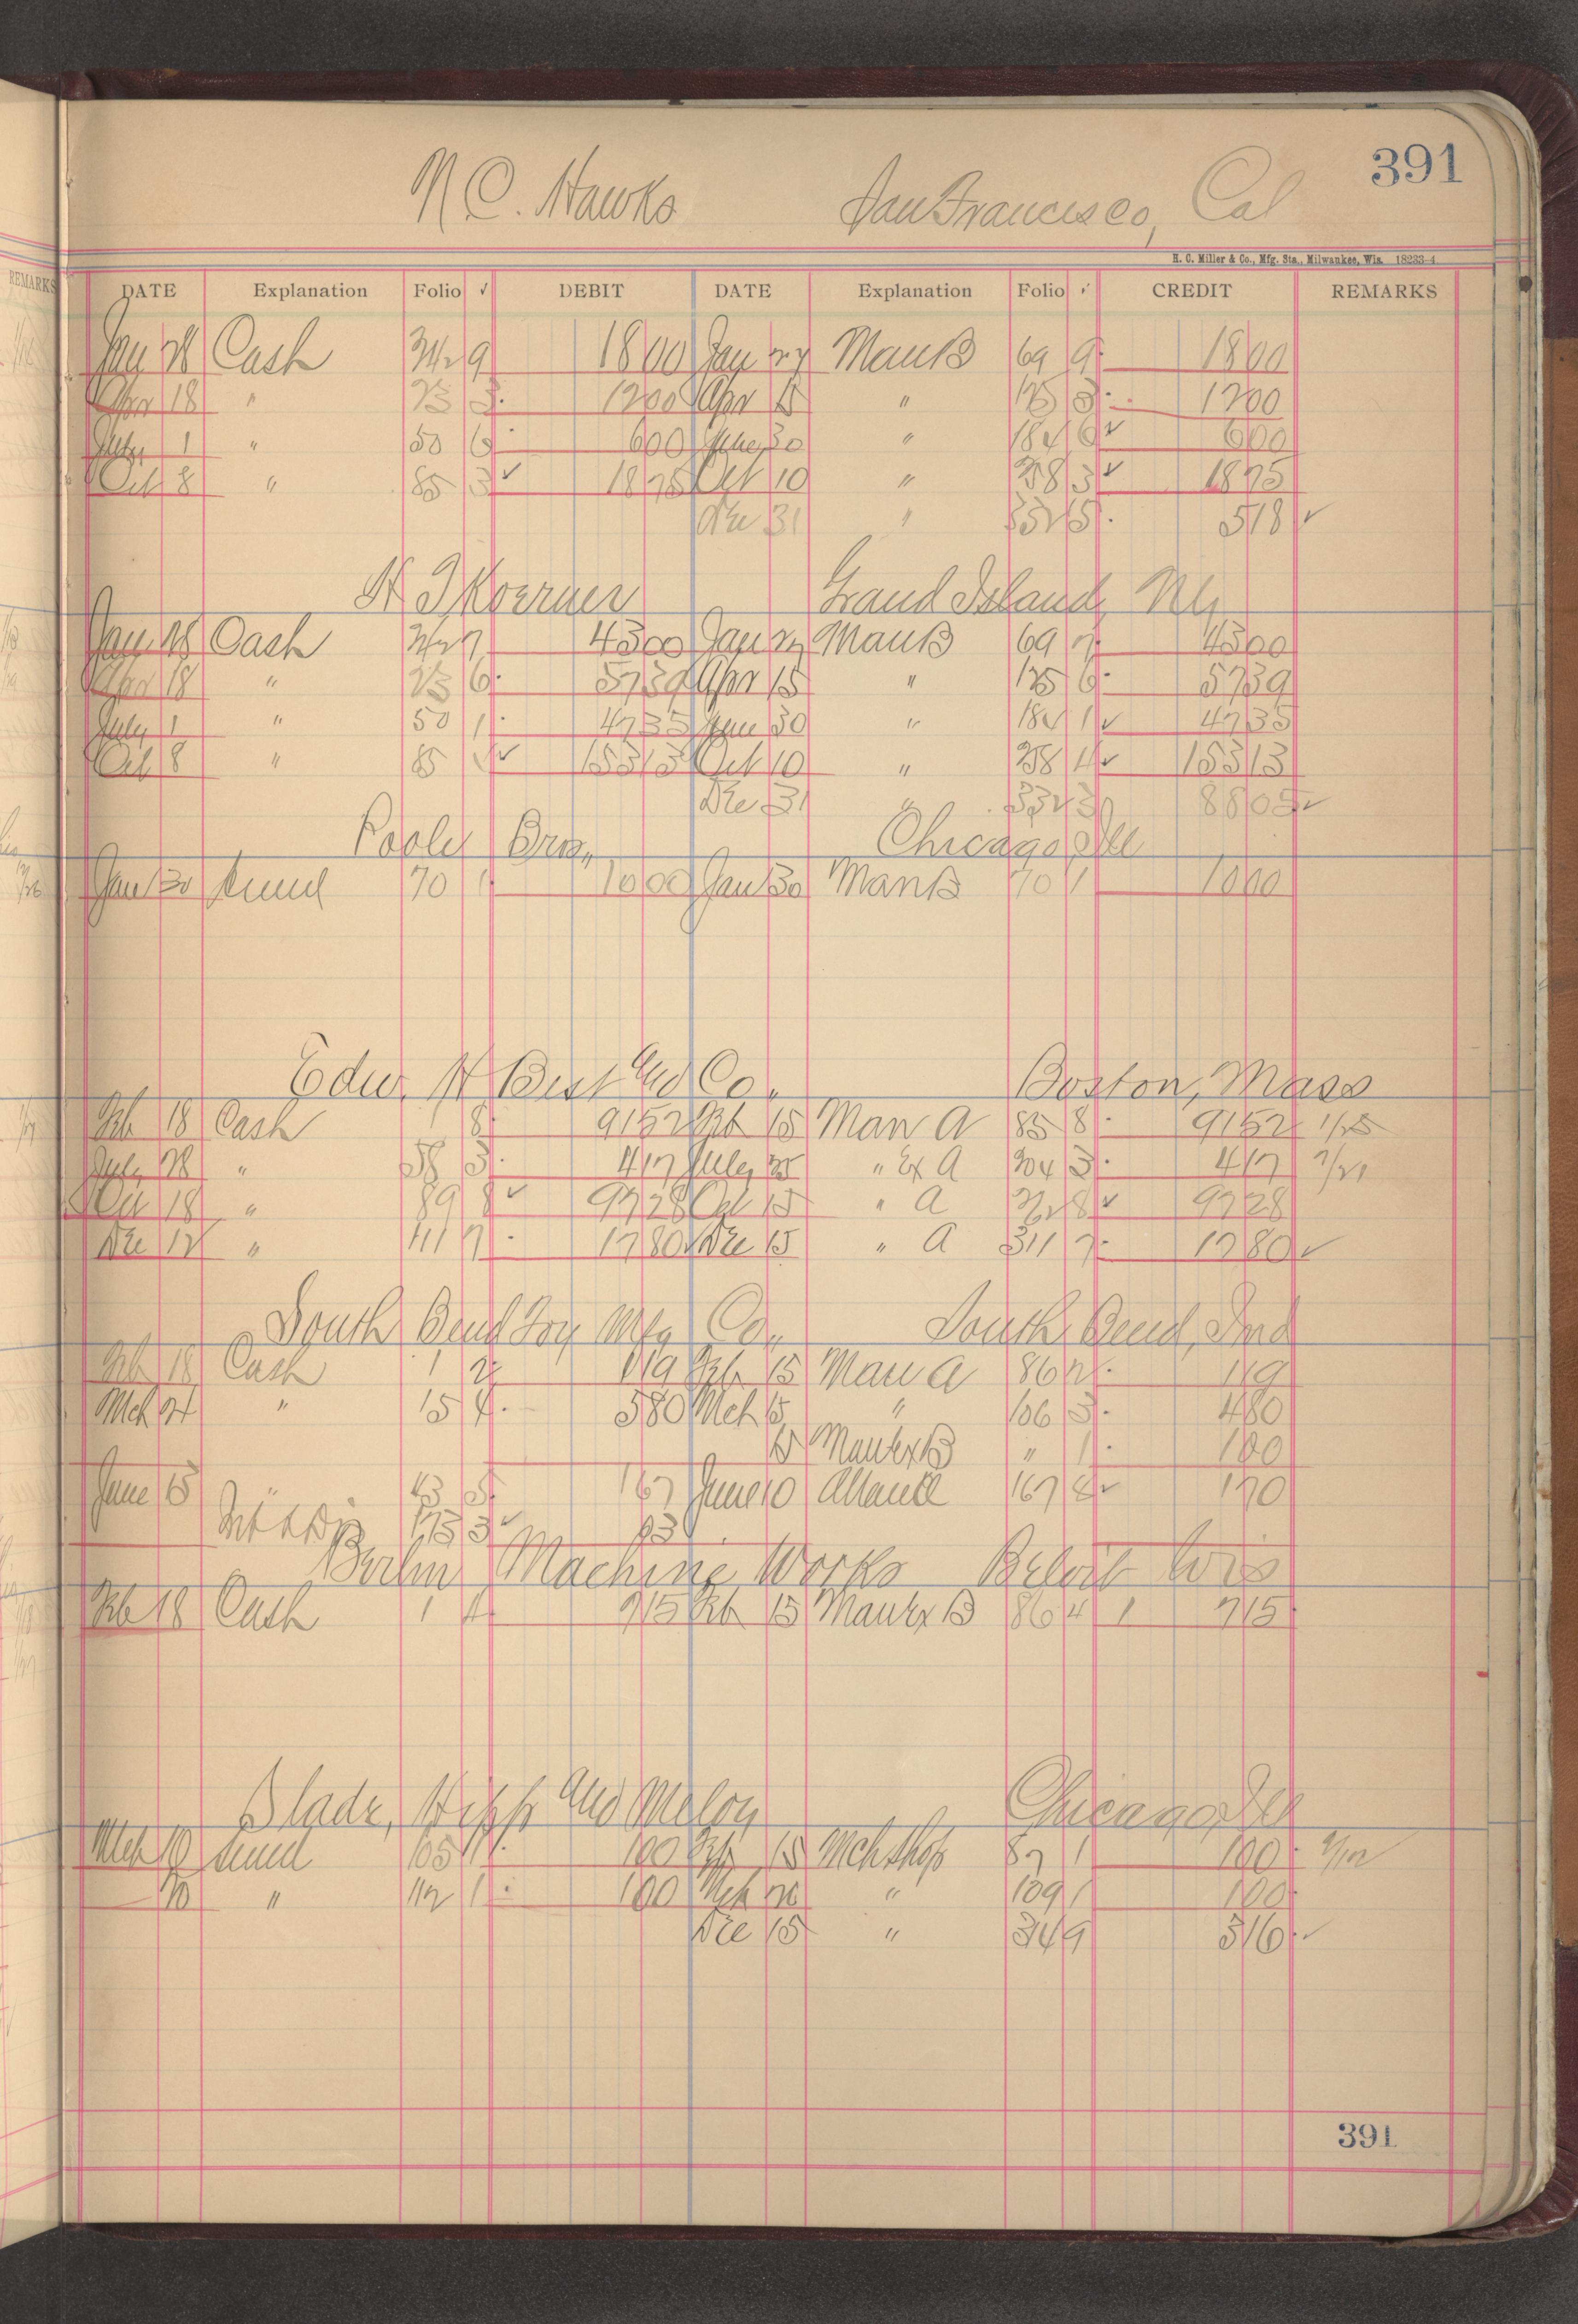 391
N C. Hawks San Francisco, Cal
H. C. Miller & Co., Mfg. Sta., Milwaukee, Wis. 18233-4
DATE Explanation Folio ✓ DEBIT DATE Explanation Folio ✓ CREDIT REMARKS
Jan 28 Cash 342 9 1800 Jan 27 Man B 69 9 1800
Apr 18 " 23 3 1200 Apr 15 " 125 3 1200
July 1 " 50 6 600 June 30 " 184 6 ✓ 600
Oct 8 " 85 3 ✓ 1875 Oct 10 " 258 3 ✓ 1875
Dec 31 " 332 5 518 ✓
H J Koerner Grand Island, Neb
Jan 28 Cash 342 7 4300 Jan 27 Man B 69 7 4300
Apr 18 " 23 6 5739 Apr 15 " 125 6 5739
July 1 " 50 1 4735 June 30 " 184 1 ✓ 4735
Oct 8 " 85 ✓ 15313 Oct 10 " 258 4 ✓ 15313
Dec 31 " 332 3 8805 ✓
Poole Bros., Chicago Ill
Jan 30 70 1 1000 Jan 30 Man B 70 1 1000
Edw. H Best and Co., Boston, Mass
Feb 18 Cash 1 8 9152 Feb 15 Man A 85 8 9152 1/25
July 28 " 58 3 417 July 25 " Ex A 204 3 417 7/21
Oct 18 " 89 8 ✓ 9728 Oct 15 " A 272 8 ✓ 9728
Dec 12 " 111 7 1780 ✓ Dec 15 " A 311 7 1780 ✓
South Bend Toy Mfg Co., South Bend, Ind
Feb 18 Cash 1 2 119 Feb 15 Man A 86 2 119
Mch 24 " 15 4 580 Mch 15 " 106 3 480
15 Man Ex B " 1 100
June 15 " 43 5 167 June 10 167 8 ✓ 170
175 3 ✓ 03
Berlin Machine Works Beloit Wis
Feb 18 Cash 1 4 715 Feb 15 Man Ex B 86 4 1 715
Slade, Hipp and Meloy Chicago, Ill
Mch 10 105 1 100 Feb 15 Mch Shop 87 1 100
10 " 112 1 100 Mch 20 " 109 1 100
Dec 15 " 314 9 316 ✓
391